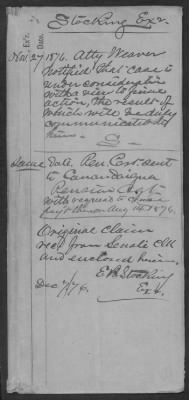 Stocking Exr.
Ex'r.
Date.
Nov. 27 1876. Atty Weaver
notified that case is
under consideration
with a view to final
action, the result of
which will be duly
communicated to
him. S.
Same Date. Pen Cert. sent
to Canandaigua
Pension Agt
with request to
pay thereon Aug 14. 1876.
Original claim
rec'd from Senate Clk
and enclosed herein.
E B Stocking
Dec 7/76. Exr.